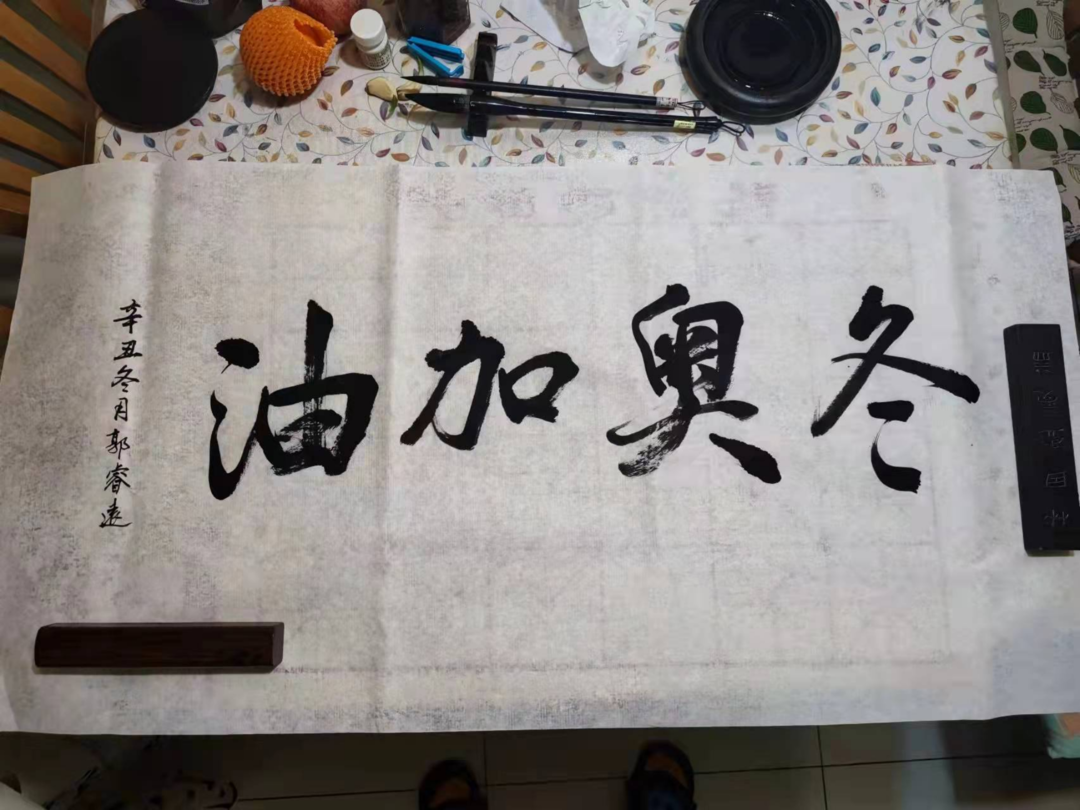 冬奥加油
辛丑冬月郭睿远